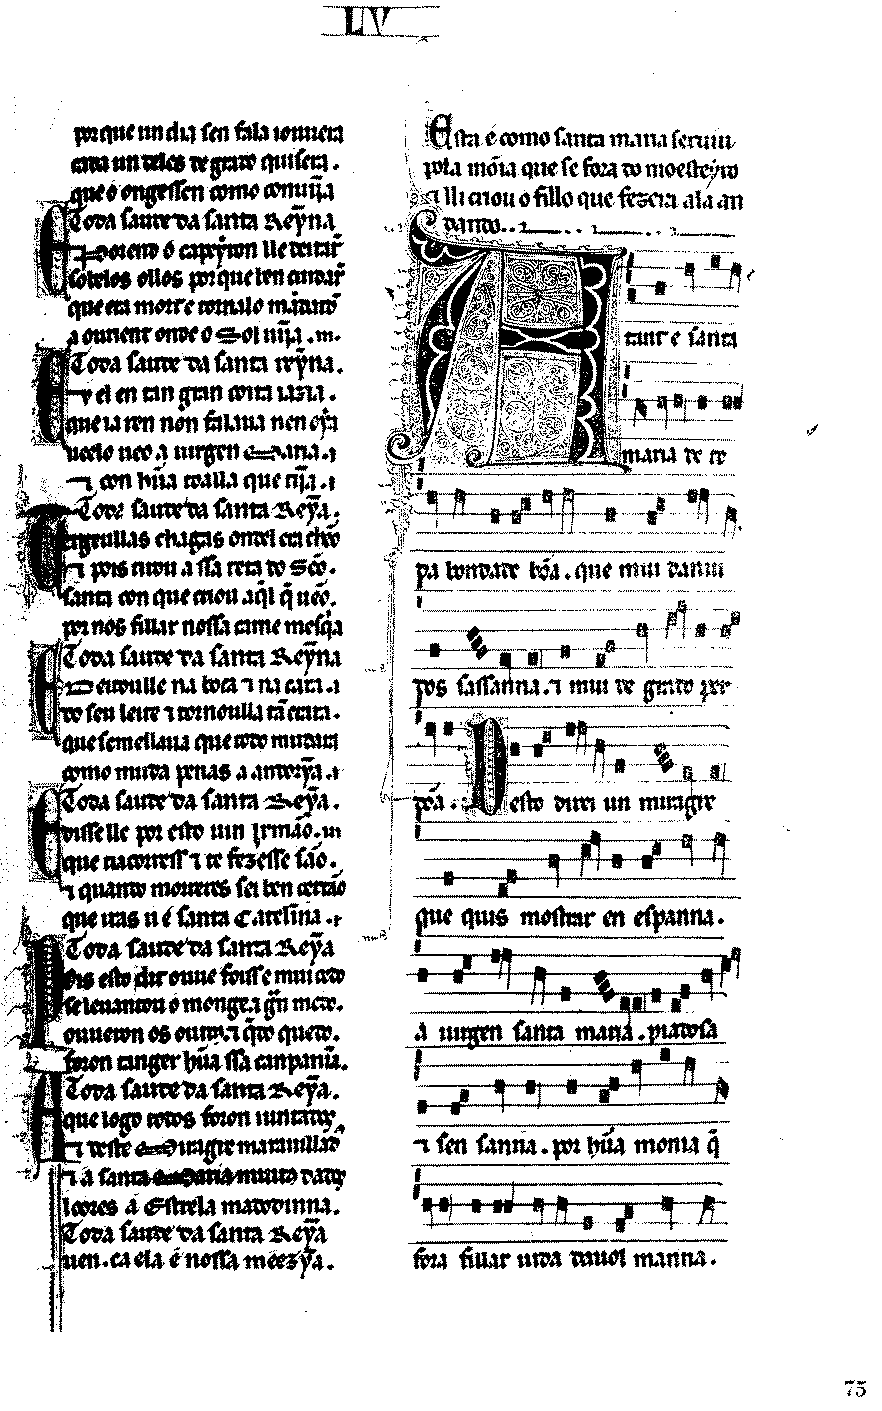 LIV
por que un dia sen fala iouuera
cara un deles de grado quisera.
que o ongessen como conuĩja
Toda saude da santa Reyna
E porend o capeyron lle deitar
sobelos ollos por que ben cuidar
que era mort e tornalo mãdarõ
a ourient onde o Sol uĩja .
Toda saude da santa reỹna.
E el en tan gran coita iazia.
que ia ren non falaua nen oya
ueelo ueo a uirgen Maria. ⁊
⁊ con hũa toalla que tĩja. ⁊
Tode saude da santa Reỹa.
Tergeullas chagas ond el era chẽo
⁊ pois tirou a ssa teta do Sẽo.
santa con que criou aq̃l q̃ uẽo.
por nos fillar nossa carne mesq̃a
Toda saude da santa Reỹna
E Deitoulle na boca ⁊ na cara. ⁊
do seu leite ⁊ tornoulla tã crara.
que semellaua que todo mudara
como muda penas a andorỹa. ⁊
Toda saude da santa Reỹa.
E disselle por esto uin Jrmão. m
que ti acorress ⁊ te fezesse são.
⁊ quando morreres sei ben certão
que iras u é santa Catelina. ⁊
Toda saude da santa Reỹa
Pois esto dit ouue foisse mui cedo
se leuantou o monge. ⁊ grã medo.
ouueron os outros. ⁊ q̃do quedo.
foron tanger hũa ssa canpanĩa.
Toda saude da santa Reỹa.
A que logo todos foron iuntados
⁊ deste Miragre marauillados
⁊ a santa Maria muitos dados
loores á Estrela madodinna.
Toda saude da santa Reỹa
uen. ca ela é nossa meezỹa.
Esta é como santa maria seruiu
pola mõia que se fora do moesteyro
⁊ lli criou o fillo que fezera ala an
dando..
Atant e santa
maria de te
da bondade bõa. que mui danui
dos sassanna. ⁊ mui de grado per
dõa. Desto direi un miragre
que quis mostrar en espanna.
a uirgen santa maria. piadosa
⁊ sen sanna. por hũa monia q̃
fora fillar uida dauol manna.
75